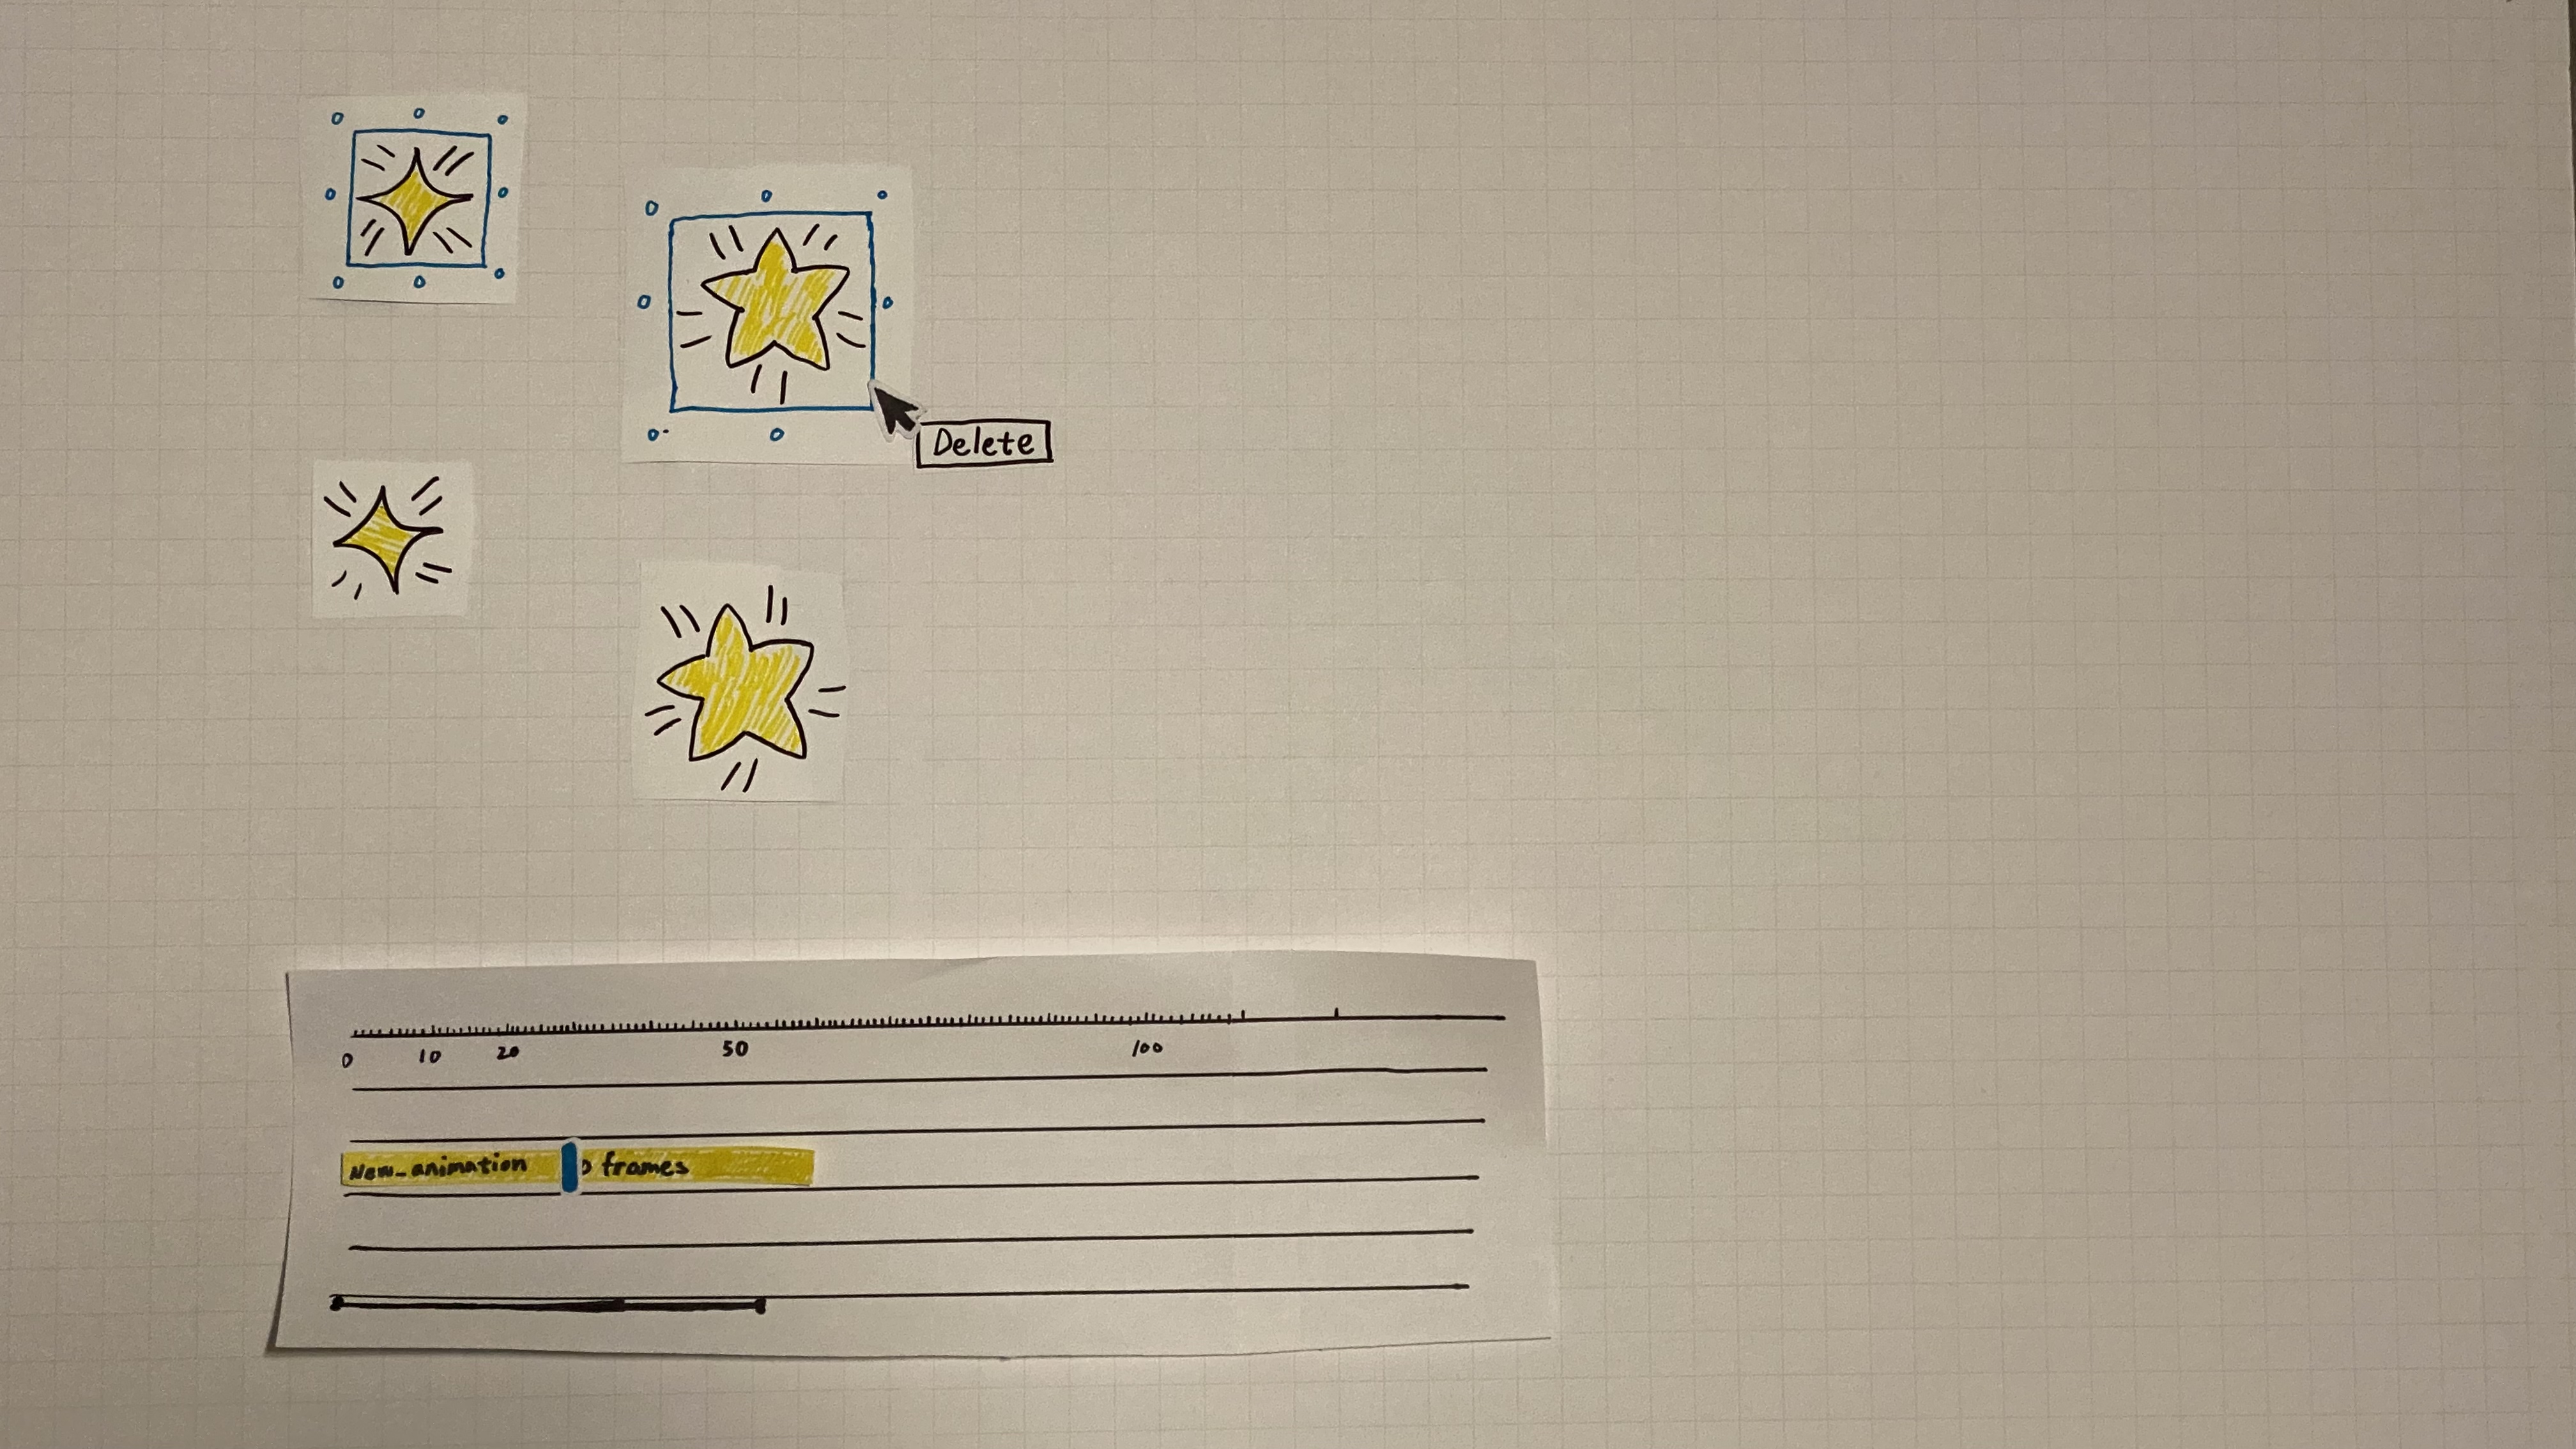 Delete
0 10 20 50 100
New_animation
frames